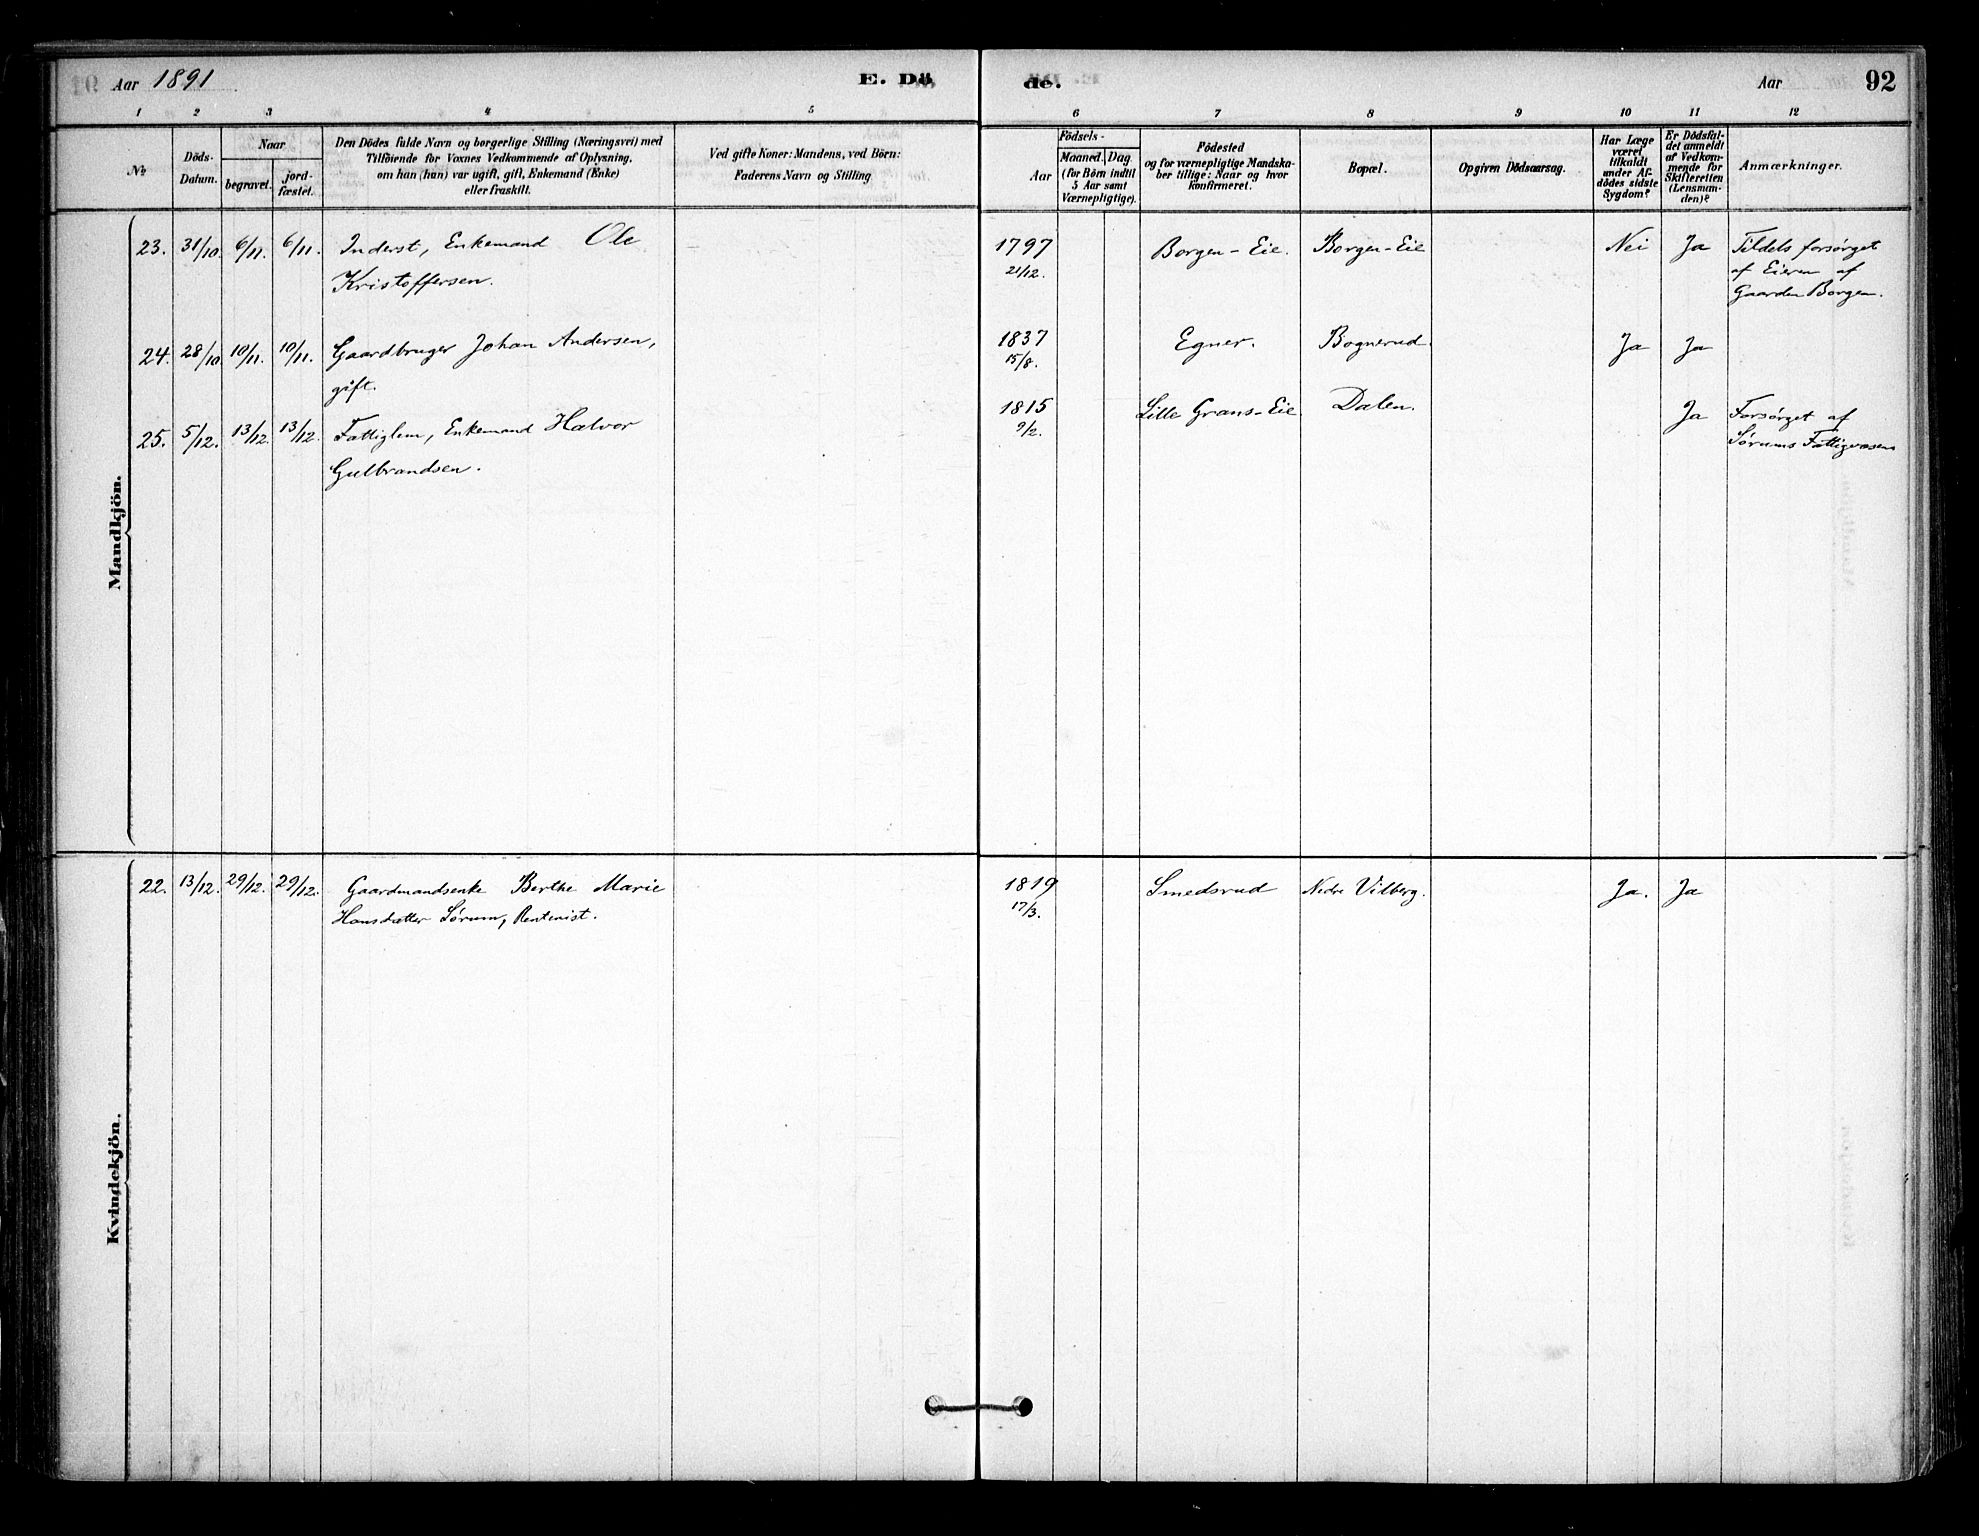 Aar 1891
E. Dö
de.
Aar
92
1 2 3 4 5
6 7 8 9 10 11 12
No
Döds-
Datum.
Naar
begravet.
jord-
fæstet.
Den Dödes fulde Navn og borgerlige Stilling (Næringsvei) med
Tilföiende for Voxnes Vedkommende af Oplysning,
om han (hun) var ugift, gift, Enkemand (Enke)
eller fraskilt.
Ved gifte Koner: Mandens, ved Börn:
Faderens Navn og Stilling
Födsels-
Aar
Maaned. Dag.
(for Börn indtil
5 Aar samt
Værnepligtige).
Födested
og for værnepligtige Mandska-
ber tillige: Naar og hvor
konfirmeret.
Bopæl.
Opgiven Dödsaarsag.
Har Læge
været
tilkaldt
under Af-
dödes sidste
Sygdom?
Er Dödsfal-
det anmeldt
af Vedkom-
mende for
Skifteretten
(Lensman-
den)?
Anmærkninger.
Mandkjön.
23. 31/10 6/11. 6/11. Inderst, Enkemand Ole
Kristoffersen.
1797
21/12.
Borgen-Eie. Borgen-Eie Nei Ja
Tildels forsørget
af Eieren af
Gaarden Borgen.
24. 28/10 10/11. 10/11. Gaardbruger Johan Andersen,
gift.
1837
15/8.
Egner. Bognerud. Ja Ja
25. 5/12. 13/12. 13/12. Fattiglem, Enkemand Halvor
Gulbrandsen.
1815
9/2.
Lille Grans-Eie. Dalen. Ja
Forsørget af
Sørums Fattigvæsen
Kvindekjön.
22. 13/12. 29/12. 29/12. Gaardmandsenke Berthe Marie
Hansdatter Sørum, Rentenist.
1819
17/3.
Smedsrud Nedre Vilberg. Ja. Ja